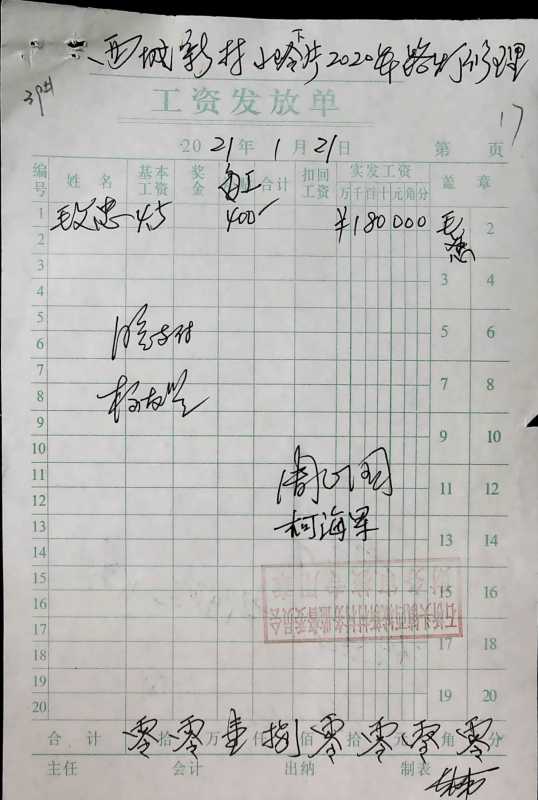 西城新村小岭下片2020年路灯修理
39#
工资发放单
17
2021年1月21日 第 页
编号 姓名 基本工资 奖金 合计 扣回工资 实发工资 盖章
万千百十元角分
1 毛文忠 4.5 400 ¥180000 毛文忠 2
2
3 3 4
4
5 5 6
6
7 7 8
8
9 9 10
10
11 11 12
12
13 13 14
14
15 15 16
16
17 17 18
18
19 19 20
20
同意支付
周
柯海军
石桥头镇西城新村村务监督委员会
财务审核专用章
合计 零拾零万壹仟捌佰零拾零元零角零分
主任 会计 出纳 制表